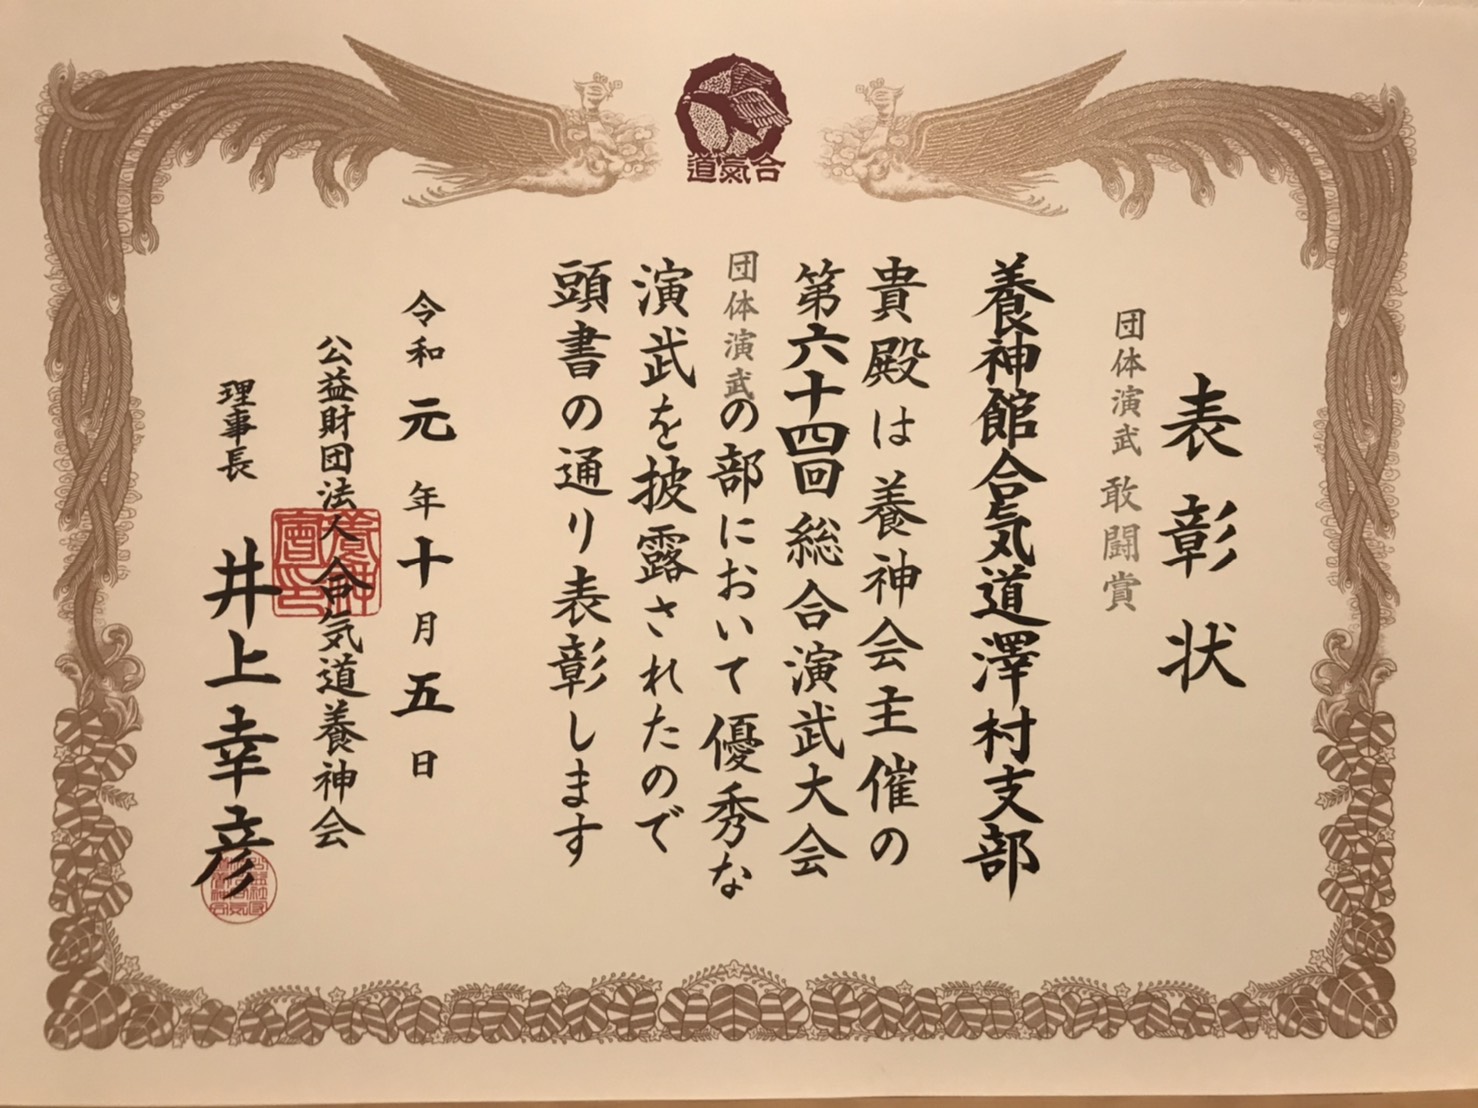 合氣道
表彰状
団体演武 敢闘賞
養神館合気道澤村支部
貴殿は養神会主催の
第六十四回総合演武大会
団体演武の部において優秀な
演武を披露されたので
頭書の通り表彰します
令和元年十月五日
公益財団法人合気道養神会
理事長 井上幸彦